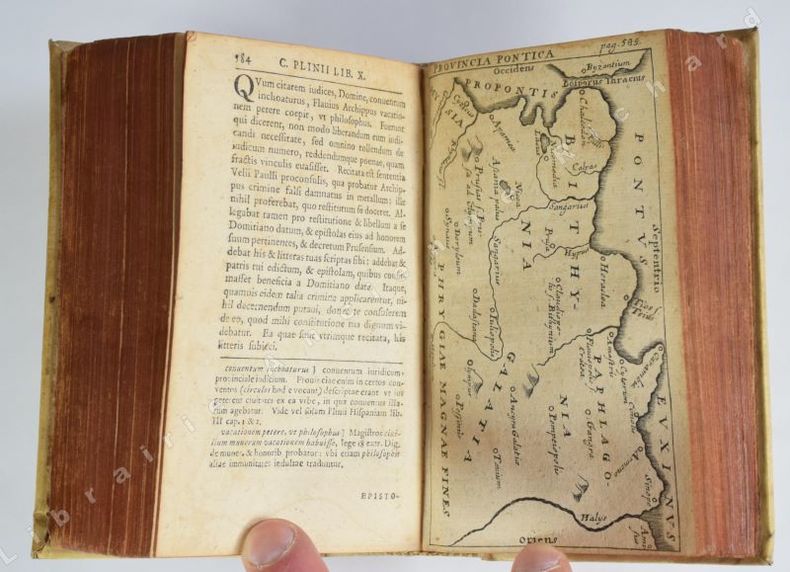 584 C. PLINII LIB. X.
QVum citarem iudices, Domine, conuentum
inchoaturus, Flauius Archippus vacatio-
nem petere coepit, vt philosophus. Fuerunt
qui dicerent, non modo liberandum eum iudi-
candi necessitate, sed omnino tollendum de
iudicum numero, reddendumque poenae, quam
fractis vinculis euasisset. Recitata est sententia
Velii Paulli proconsulis, qua probatur Archip-
pus crimine falsi damnatus in metallum: ille
nihil proferebat, quo restitutum se doceret. Al-
legabat tamen pro restitutione & libellum a se
Domitiano datum, & epistolas eius ad honorem
suum pertinentes, & decretum Prusensium. Ad-
debat his & litteras tuas scriptas sibi: addebat &
patris tui edictum, & epistolam, quibus confir-
masset beneficia a Domitiano data. Itaque,
quamuis eidem talia crimina applicarentur, ni-
hil decernendum putaui, donec te consulerem
de eo, quod mihi constitutione tua dignum vi-
debatur. Ea quae sunt vtrimque recitata, his
litteris subieci.
conuentum inchoaturus] conuentum iuridicum,
prouinciale iudicium. Prouinciae enim in certos con-
ventos (circulos hod e vocant) descriptae erant vt ius
peterent ciuitates ex ea vrbe, in qua conuentus illa-
rum agebatur. Vide vel solam Plinii Hispaniam lib.
III cap. 1 & 2.
vacationem petere, vt philosophus] Magistros ciui-
lium munerum vacationem habuisse, lege 18 extr. Dig.
de mune. & honorib. probatur: vbi etiam philosophis
aliae immunitates indultae traduntur.
EPISTO-
PROVINCIA PONTICA
pag. 585.
Occidens
Byzantium
PROPONTIS
Bosporus Thracius
Cyzicus
SIA
Apamea
Chalcedon
PONTVS
BITHYNIA
Nicomedia
Calpas
Ascania palus
Nicaea
Prusias
Sangarius
Septentrio
Hypius
Heraclea
Dorylaeum
Synaus
Sangarius
Claudiopo-
lis s. Bithynium
Dadastana
Iuliopolis
Tios
PHRYGIAE MAGNAE FINES
GALATIA
PAPHLAGONIA
Amastris
Cytorum
Carambis
Gangra
Pompeiopolis
Ancyra Galatiae
Pessinus
Tavium
EVXINVS
Sinope
Halys
Oriens
Librairie
chard